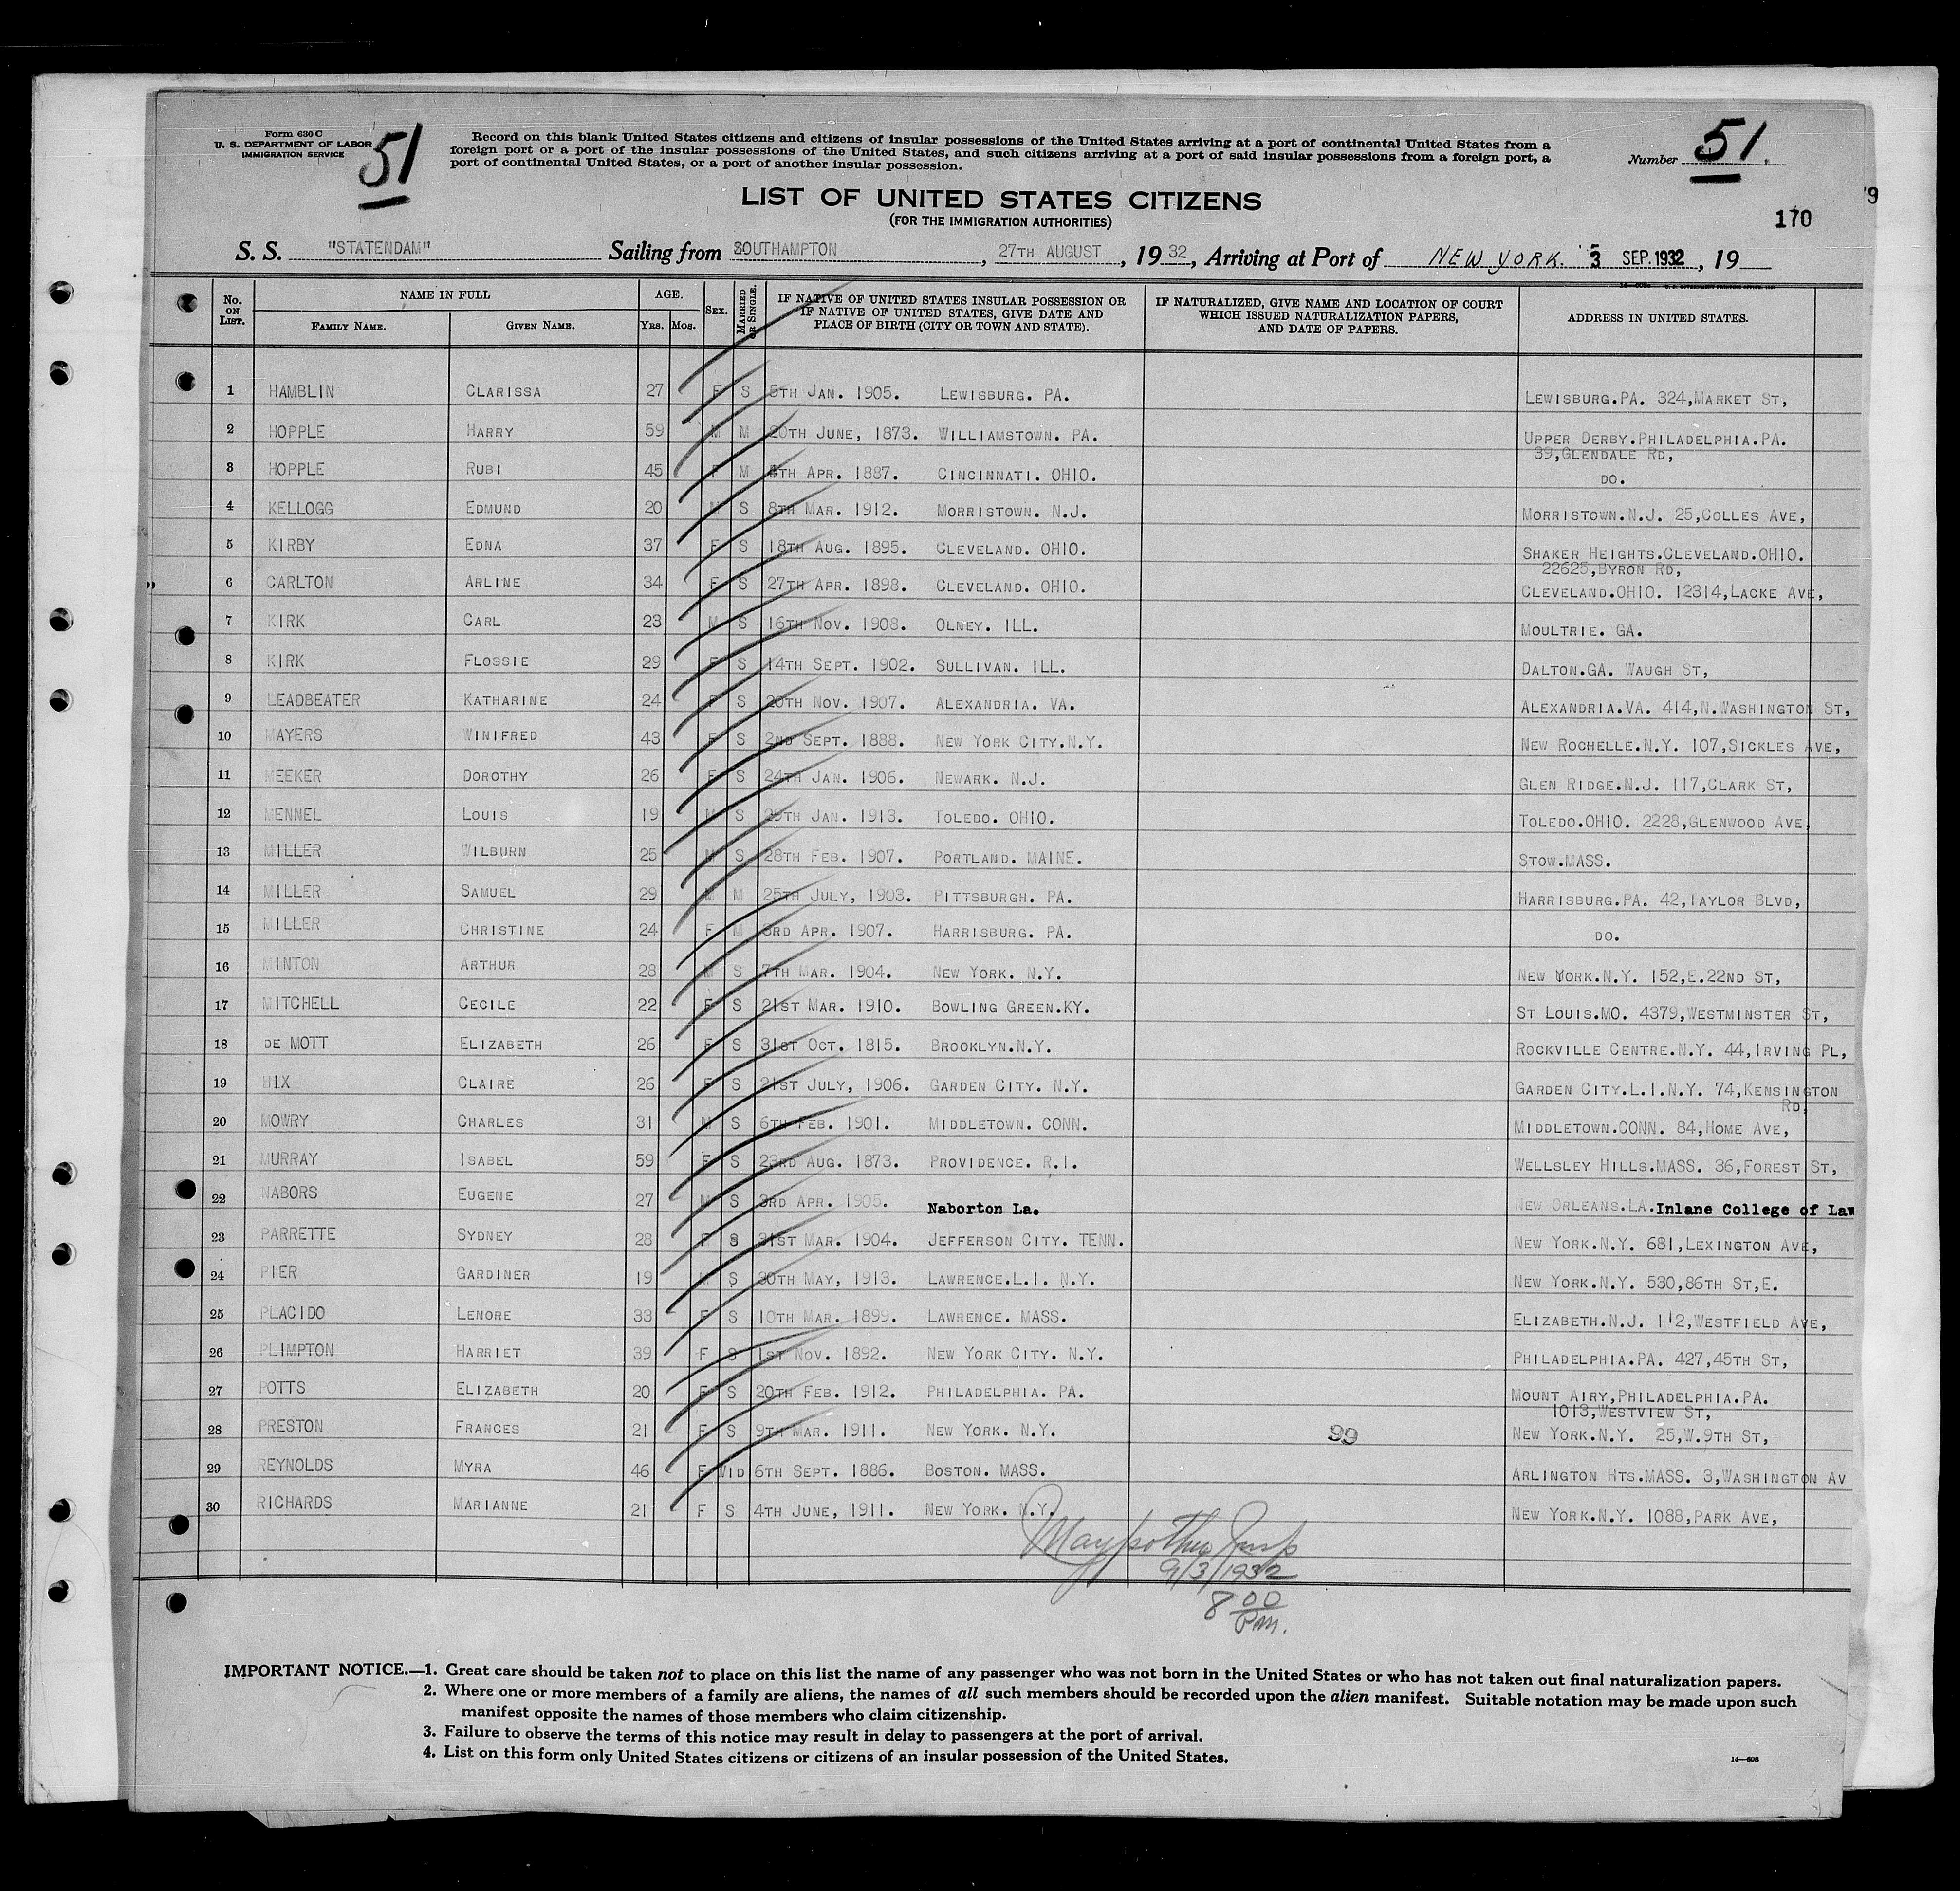 Form 630 C
U. S. DEPARTMENT OF LABOR
IMMIGRATION SERVICE
51
Record on this blank United States citizens and citizens of insular possessions of the United States arriving at a port of continental United States from a
foreign port or a port of the insular possessions of the United States, and such citizens arriving at a port of said insular possessions from a foreign port, a
port of continental United States, or a port of another insular possession.
Number 51.
LIST OF UNITED STATES CITIZENS
(FOR THE IMMIGRATION AUTHORITIES)
170
S. S. "STATENDAM" Sailing from SOUTHAMPTON, 27TH AUGUST, 1932, Arriving at Port of NEW YORK. 3 SEP. 1932, 19
No. ON LIST. NAME IN FULL FAMILY NAME. GIVEN NAME. AGE. YRS. MOS. SEX. MARRIED OR SINGLE. IF NATIVE OF UNITED STATES INSULAR POSSESSION OR IF NATIVE OF UNITED STATES, GIVE DATE AND PLACE OF BIRTH (CITY OR TOWN AND STATE). IF NATURALIZED, GIVE NAME AND LOCATION OF COURT WHICH ISSUED NATURALIZATION PAPERS, AND DATE OF PAPERS. ADDRESS IN UNITED STATES.
1 HAMBLIN CLARISSA 27 F S 5TH JAN. 1905. LEWISBURG. PA. LEWISBURG.PA. 324,MARKET ST,
2 HOPPLE HARRY 59 M M 20TH JUNE, 1873. WILLIAMSTOWN. PA. UPPER DERBY.PHILADELPHIA.PA.
39,GLENDALE RD,
3 HOPPLE RUBI 45 F M TH APR. 1887. CINCINNATI. OHIO. DO.
4 KELLOGG EDMUND 20 M S 8TH MAR. 1912. MORRISTOWN. N.J. MORRISTOWN.N.J. 25,COLLES AVE,
5 KIRBY EDNA 37 F S 18TH AUG. 1895. CLEVELAND. OHIO. SHAKER HEIGHTS.CLEVELAND.OHIO.
22625,BYRON RD,
6 CARLTON ARLINE 34 F S 27TH APR. 1898. CLEVELAND. OHIO. CLEVELAND.OHIO. 12314,LACKE AVE,
7 KIRK CARL 23 M S 16TH NOV. 1908. OLNEY. ILL. MOULTRIE. GA.
8 KIRK FLOSSIE 29 F S 14TH SEPT. 1902. SULLIVAN. ILL. DALTON.GA. WAUGH ST,
9 LEADBEATER KATHARINE 24 F S 20TH NOV. 1907. ALEXANDRIA. VA. ALEXANDRIA.VA. 414,N.WASHINGTON ST,
10 MAYERS WINIFRED 43 F S 2ND SEPT. 1888. NEW YORK CITY.N.Y. NEW ROCHELLE.N.Y. 107,SICKLES AVE,
11 MEEKER DOROTHY 26 F S 24TH JAN. 1906. NEWARK. N.J. GLEN RIDGE.N.J. 117,CLARK ST,
12 MENNEL LOUIS 19 M S 29TH JAN. 1913. TOLEDO. OHIO. TOLEDO.OHIO. 2228,GLENWOOD AVE,
13 MILLER WILBURN 25 M S 28TH FEB. 1907. PORTLAND. MAINE. STOW.MASS.
14 MILLER SAMUEL 29 M M 25TH JULY, 1903. PITTSBURGH. PA. HARRISBURG.PA. 42,TAYLOR BLVD,
15 MILLER CHRISTINE 24 F M 3RD APR. 1907. HARRISBURG. PA. DO.
16 MINTON ARTHUR 28 M S 7TH MAR. 1904. NEW YORK. N.Y. NEW YORK.N.Y. 152,E.22ND ST,
17 MITCHELL CECILE 22 F S 21ST MAR. 1910. BOWLING GREEN.KY. ST LOUIS.MO. 4379,WESTMINSTER ST,
18 DE MOTT ELIZABETH 26 F S 31ST OCT. 1815. BROOKLYN.N.Y. ROCKVILLE CENTRE.N.Y. 44,IRVING PL,
19 CLAIRE 26 F S 21ST JULY, 1906. GARDEN CITY. N.Y. GARDEN CITY.L.I.N.Y. 74,KENSINGTON
RD,
20 MOWRY CHARLES 31 M S 6TH FEB. 1901. MIDDLETOWN. CONN. MIDDLETOWN.CONN. 84,HOME AVE,
21 MURRAY ISABEL 59 F S 23RD AUG. 1873. PROVIDENCE. R.I. WELLSLEY HILLS.MASS. 36,FOREST ST,
22 NABORS EUGENE 27 M S 3RD APR. 1905. Naborton La. NEW ORLEANS.LA.Inlane College of Law
23 PARRETTE SYDNEY 28 F S 31ST MAR. 1904. JEFFERSON CITY. TENN. NEW YORK.N.Y. 681,LEXINGTON AVE,
24 PIER GARDINER 19 M S 30TH MAY, 1913. LAWRENCE.L.I. N.Y. NEW YORK.N.Y. 530,86TH ST,E.
25 PLACIDO LENORE 33 F S 10TH MAR. 1899. LAWRENCE. MASS. ELIZABETH.N.J. 112,WESTFIELD AVE,
26 PLIMPTON HARRIET 39 F S 1ST NOV. 1892. NEW YORK CITY. N.Y. PHILADELPHIA.PA. 427,45TH ST,
27 POTTS ELIZABETH 20 F S 20TH FEB. 1912. PHILADELPHIA. PA. MOUNT AIRY,PHILADELPHIA.PA.
1013,WESTVIEW ST,
28 PRESTON FRANCES 21 F S 9TH MAR. 1911. NEW YORK. N.Y. 99 NEW YORK.N.Y. 25,W.9TH ST,
29 REYNOLDS MYRA 46 F WID 6TH SEPT. 1886. BOSTON. MASS. ARLINGTON HTS.MASS. 3,WASHINGTON AV
30 RICHARDS MARIANNE 21 F S 4TH JUNE, 1911. NEW YORK. N.Y. NEW YORK.N.Y. 1088,PARK AVE,
9/3/1932
8 00
P.M.
IMPORTANT NOTICE.—1. Great care should be taken not to place on this list the name of any passenger who was not born in the United States or who has not taken out final naturalization papers.
2. Where one or more members of a family are aliens, the names of all such members should be recorded upon the alien manifest. Suitable notation may be made upon such
manifest opposite the names of those members who claim citizenship.
3. Failure to observe the terms of this notice may result in delay to passengers at the port of arrival.
4. List on this form only United States citizens or citizens of an insular possession of the United States.